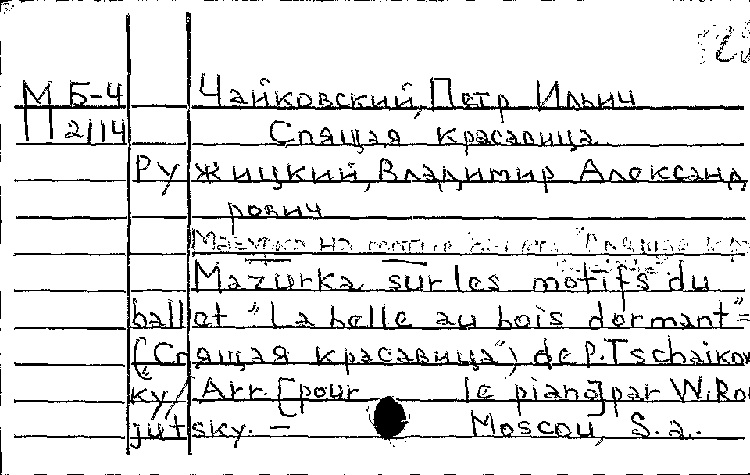 М Б-4 Чайковский, Петр Ильич
П 2/14 Спящая красавица.
Ружицкий, Владимир Александ
рович
Мазурка на
Mazurka sur les motifs du
ballet "La belle au bois dormant"=
("Спящая красавица") de P. Tschaikow
ky/ Arr. [pour le piano] par W. Rou
jutsky. – Moscou, S.a.